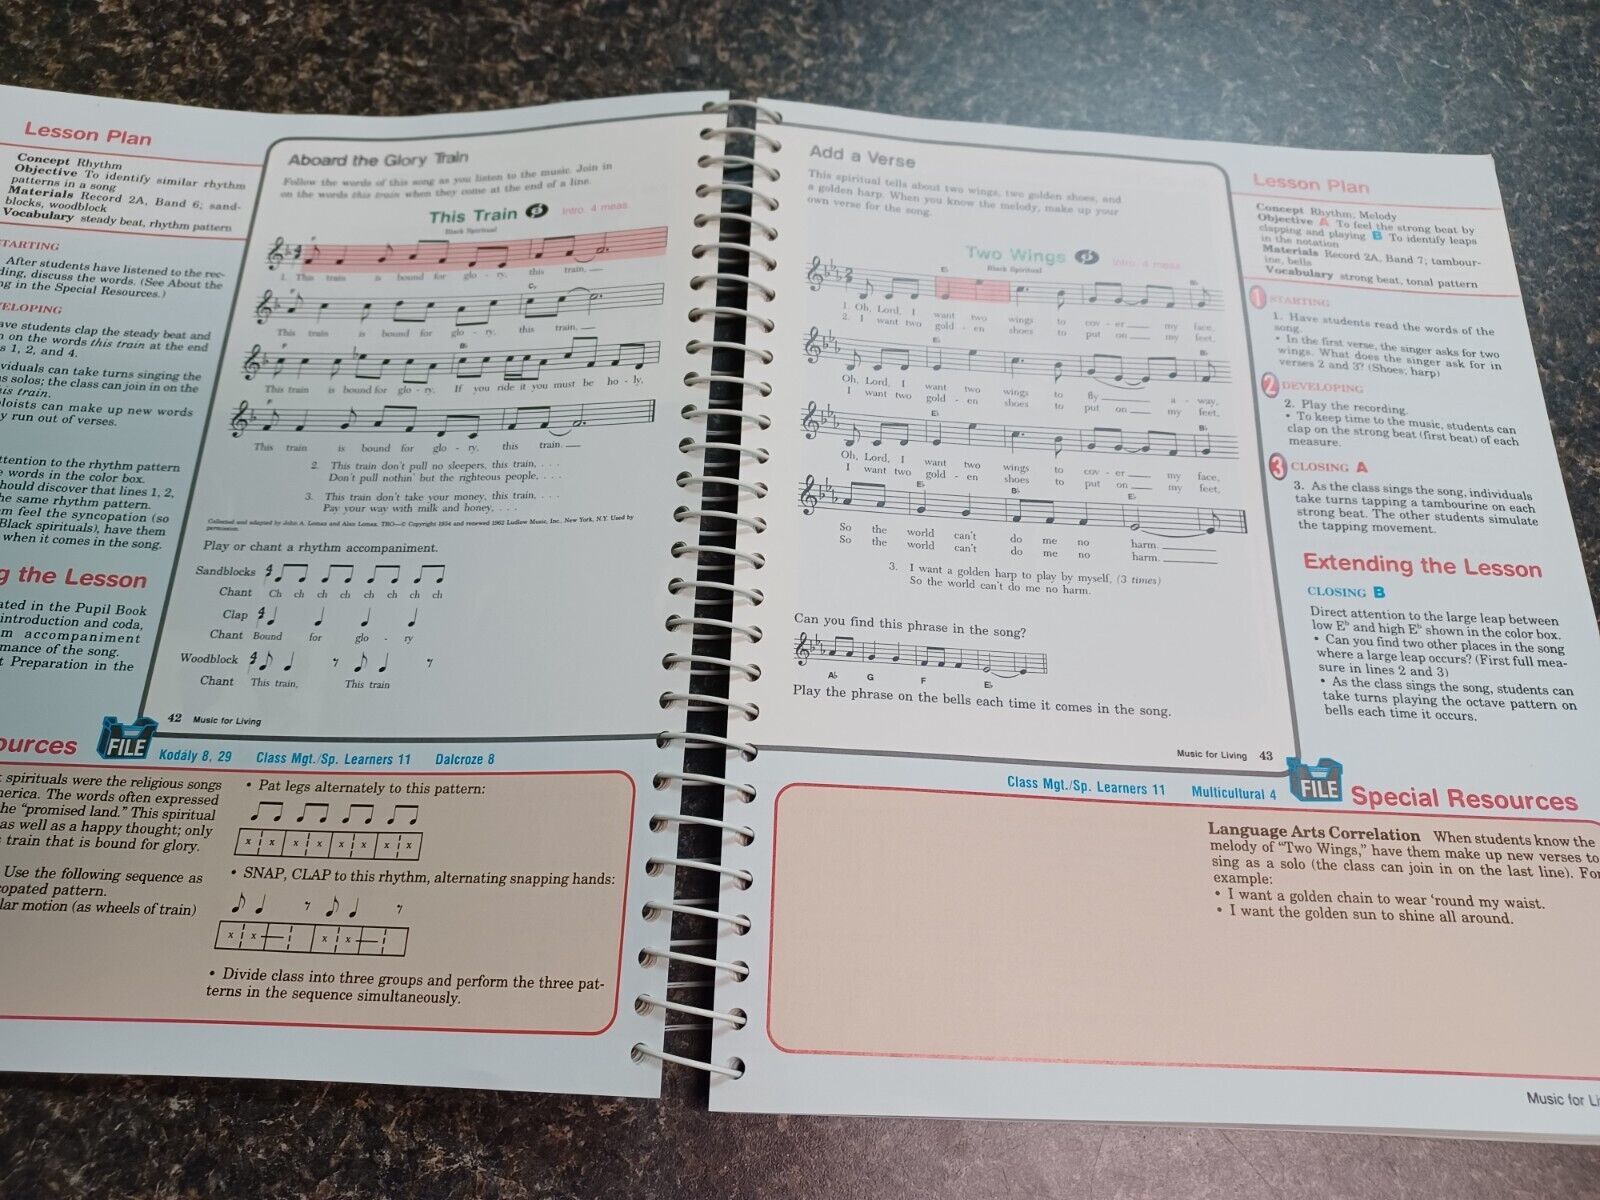 Lesson Plan
Concept Rhythm
Objective To identify similar rhythm
patterns in a song
Materials Record 2A, Band 6; sand-
blocks, woodblock
Vocabulary steady beat, rhythm pattern
STARTING
After students have listened to the rec-
ding, discuss the words. (See About the
ng in the Special Resources.)
VELOPING
ave students clap the steady beat and
n on the words this train at the end
s 1, 2, and 4.
viduals can take turns singing the
as solos; the class can join in on the
his train.
loists can make up new words
y run out of verses.
ttention to the rhythm pattern
e words in the color box.
hould discover that lines 1, 2,
he same rhythm pattern.
m feel the syncopation (so
Black spirituals), have them
when it comes in the song.
g the Lesson
ated in the Pupil Book
introduction and coda,
m accompaniment
mance of the song.
t Preparation in the
Aboard the Glory Train
Follow the words of this song as you listen to the music. Join in
on the words this train when they come at the end of a line.
This Train
Intro. 4 meas.
Black Spiritual
F
1. This train is bound for glo - ry, this train,
F C7
This train is bound for glo - ry, this train,
F B♭
This train is bound for glo - ry. If you ride it you must be ho - ly,
F
This train is bound for glo - ry, this train.
2. This train don't pull no sleepers, this train, . . .
Don't pull nothin' but the righteous people, . . .
3. This train don't take your money, this train, . . .
Pay your way with milk and honey, . . .
Collected and adapted by John A. Lomax and Alan Lomax. TRO—© Copyright 1934 and renewed 1962 Ludlow Music, Inc., New York, N.Y. Used by
permission.
Play or chant a rhythm accompaniment.
Sandblocks 4 4
Chant Ch ch ch ch ch ch ch ch
Clap 4 4
Chant Bound for glo - ry
Woodblock 4 4
Chant This train, This train
42 Music for Living
ources
FILE
Kodály 8, 29 Class Mgt./Sp. Learners 11 Dalcroze 8
k spirituals were the religious songs
merica. The words often expressed
the "promised land." This spiritual
as well as a happy thought; only
s train that is bound for glory.
Use the following sequence as
copated pattern.
lar motion (as wheels of train)
• Pat legs alternately to this pattern:
x x x x x x x x
• SNAP, CLAP to this rhythm, alternating snapping hands:
x x x x
• Divide class into three groups and perform the three pat-
terns in the sequence simultaneously.
Add a Verse
This spiritual tells about two wings, two golden shoes, and
a golden harp. When you know the melody, make up your
own verse for the song.
Two Wings
Intro. 4 meas.
Black Spiritual
E♭ B♭
1. Oh, Lord, I want two wings to cov - er my face,
2. I want two gold - en shoes to put on my feet,
E♭ B♭
Oh, Lord, I want two wings to fly a - way,
I want two gold - en shoes to put on my feet,
E♭ B♭
Oh, Lord, I want two wings to cov - er my face,
I want two gold - en shoes to put on my feet,
E♭ B♭ E♭
So the world can't do me no harm.
So the world can't do me no harm.
3. I want a golden harp to play by myself, (3 times)
So the world can't do me no harm.
Can you find this phrase in the song?
A♭ G F E♭
Play the phrase on the bells each time it comes in the song.
Music for Living 43
Lesson Plan
Concept Rhythm; Melody
Objective A To feel the strong beat by
clapping and playing B To identify leaps
in the notation
Materials Record 2A, Band 7; tambour-
ine, bells
Vocabulary strong beat, tonal pattern
1 STARTING
1. Have students read the words of the
song.
• In the first verse, the singer asks for two
wings. What does the singer ask for in
verses 2 and 3? (Shoes; harp)
2 DEVELOPING
2. Play the recording.
• To keep time to the music, students can
clap on the strong beat (first beat) of each
measure.
3 CLOSING A
3. As the class sings the song, individuals
take turns tapping a tambourine on each
strong beat. The other students simulate
the tapping movement.
Extending the Lesson
CLOSING B
Direct attention to the large leap between
low E♭ and high E♭ shown in the color box.
• Can you find two other places in the song
where a large leap occurs? (First full mea-
sure in lines 2 and 3)
• As the class sings the song, students can
take turns playing the octave pattern on
bells each time it occurs.
Class Mgt./Sp. Learners 11 Multicultural 4
FILE
Special Resources
Language Arts Correlation When students know the
melody of "Two Wings," have them make up new verses to
sing as a solo (the class can join in on the last line). For
example:
• I want a golden chain to wear 'round my waist.
• I want the golden sun to shine all around.
Music for Li